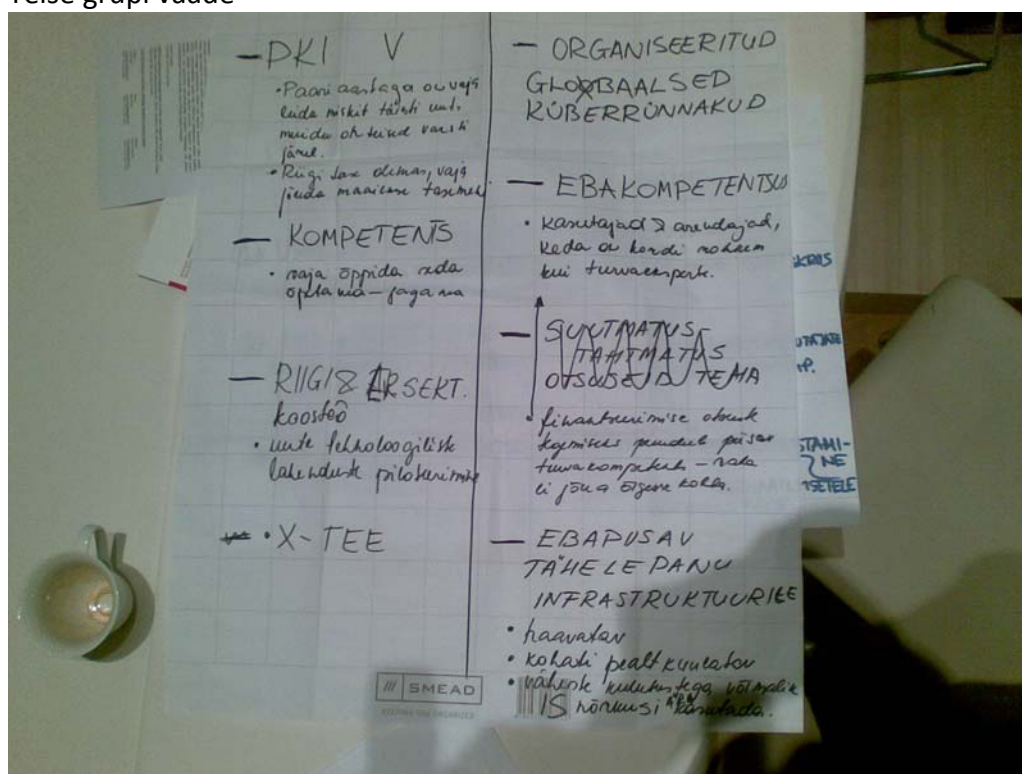 Teise grupi vaade
— PKI V
• Paari aastaga on vaja
leida miskit täiesti uut,
muidu on teised varsti
järel.
• Riigi tase olemas, vaja
jõuda maailma tasemele
— KOMPETENTS
• vaja õppida seda
õpetama – jagama
— RIIGI & ÄRSEKT.
koostöö
• uute tehnoloogiliste
lahenduste piloteerimine
• X-TEE
— ORGANISEERITUD
GLOBAALSED
KÜBERRÜNNAKUD
— EBAKOMPETENTSUS
• Kasutajad & arendajad,
keda on kordi rohkem
kui turvaeksperte.
— SUUTMATUS,
TAHTMATUS
OTSUSEID TEMA
• finantseerimise otsuste
tegemiseks puudub piisav
turvakompetents – raha
ei jõua õigesse kohta.
— EBAPIISAV
TÄHELEPANU
INFRASTRUKTUURILE
• haavatav
• kohati pealtkuulatav
• väheste kulutustega võimalik
IS nõrkusi ära kasutada.
SMEAD
TAMI-
NE
TSETELE